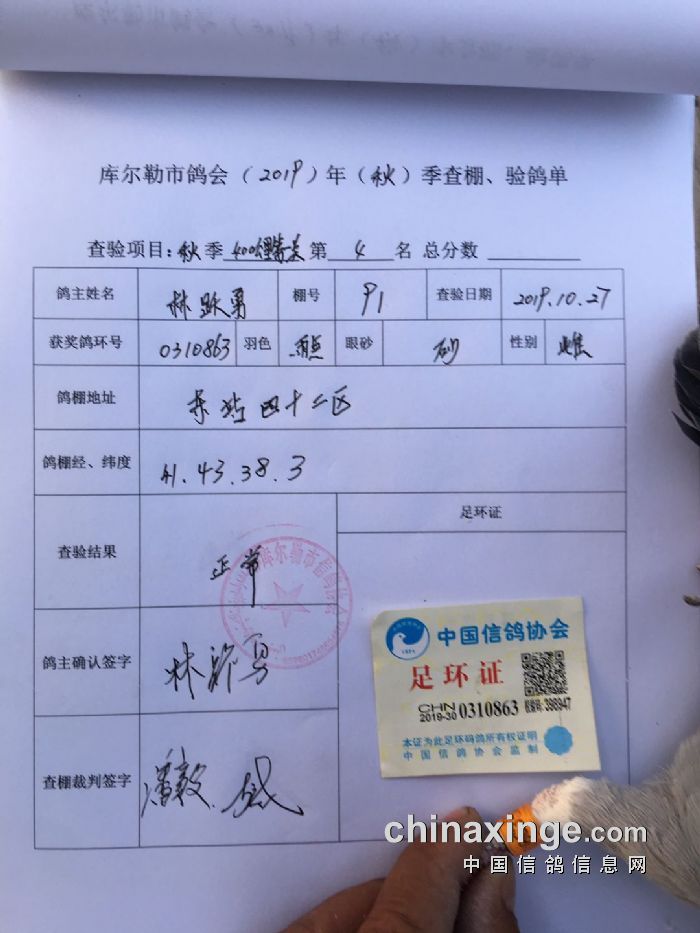 库尔勒市鸽会（2019）年（秋）季查棚、验鸽单
查验项目：秋季 400公里 第 4 名 总分数
鸽主姓名 林跃勇 棚号 91 查验日期 2019.10.27
获奖鸽环号 0310863 羽色 雨点 眼砂 砂 性别 雌
鸽棚地址 四十二区
鸽棚经、纬度 41.43.38.3
足环证
查验结果 正常
库尔勒市信鸽协会
鸽主确认签字 林跃勇
查棚裁判签字
中国信鸽协会
足环证
CHN
2019-30 0310863
本证为此足环码鸽所有权证明
中国信鸽协会监制
chinaxinge.com
中国信鸽信息网